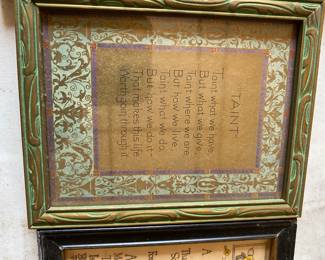 "TAINT"
Taint what we have,
But what we give,
Taint where we are
But how we live,
Taint what we do,
But how we do it-
That makes this life
Worth goin' through it